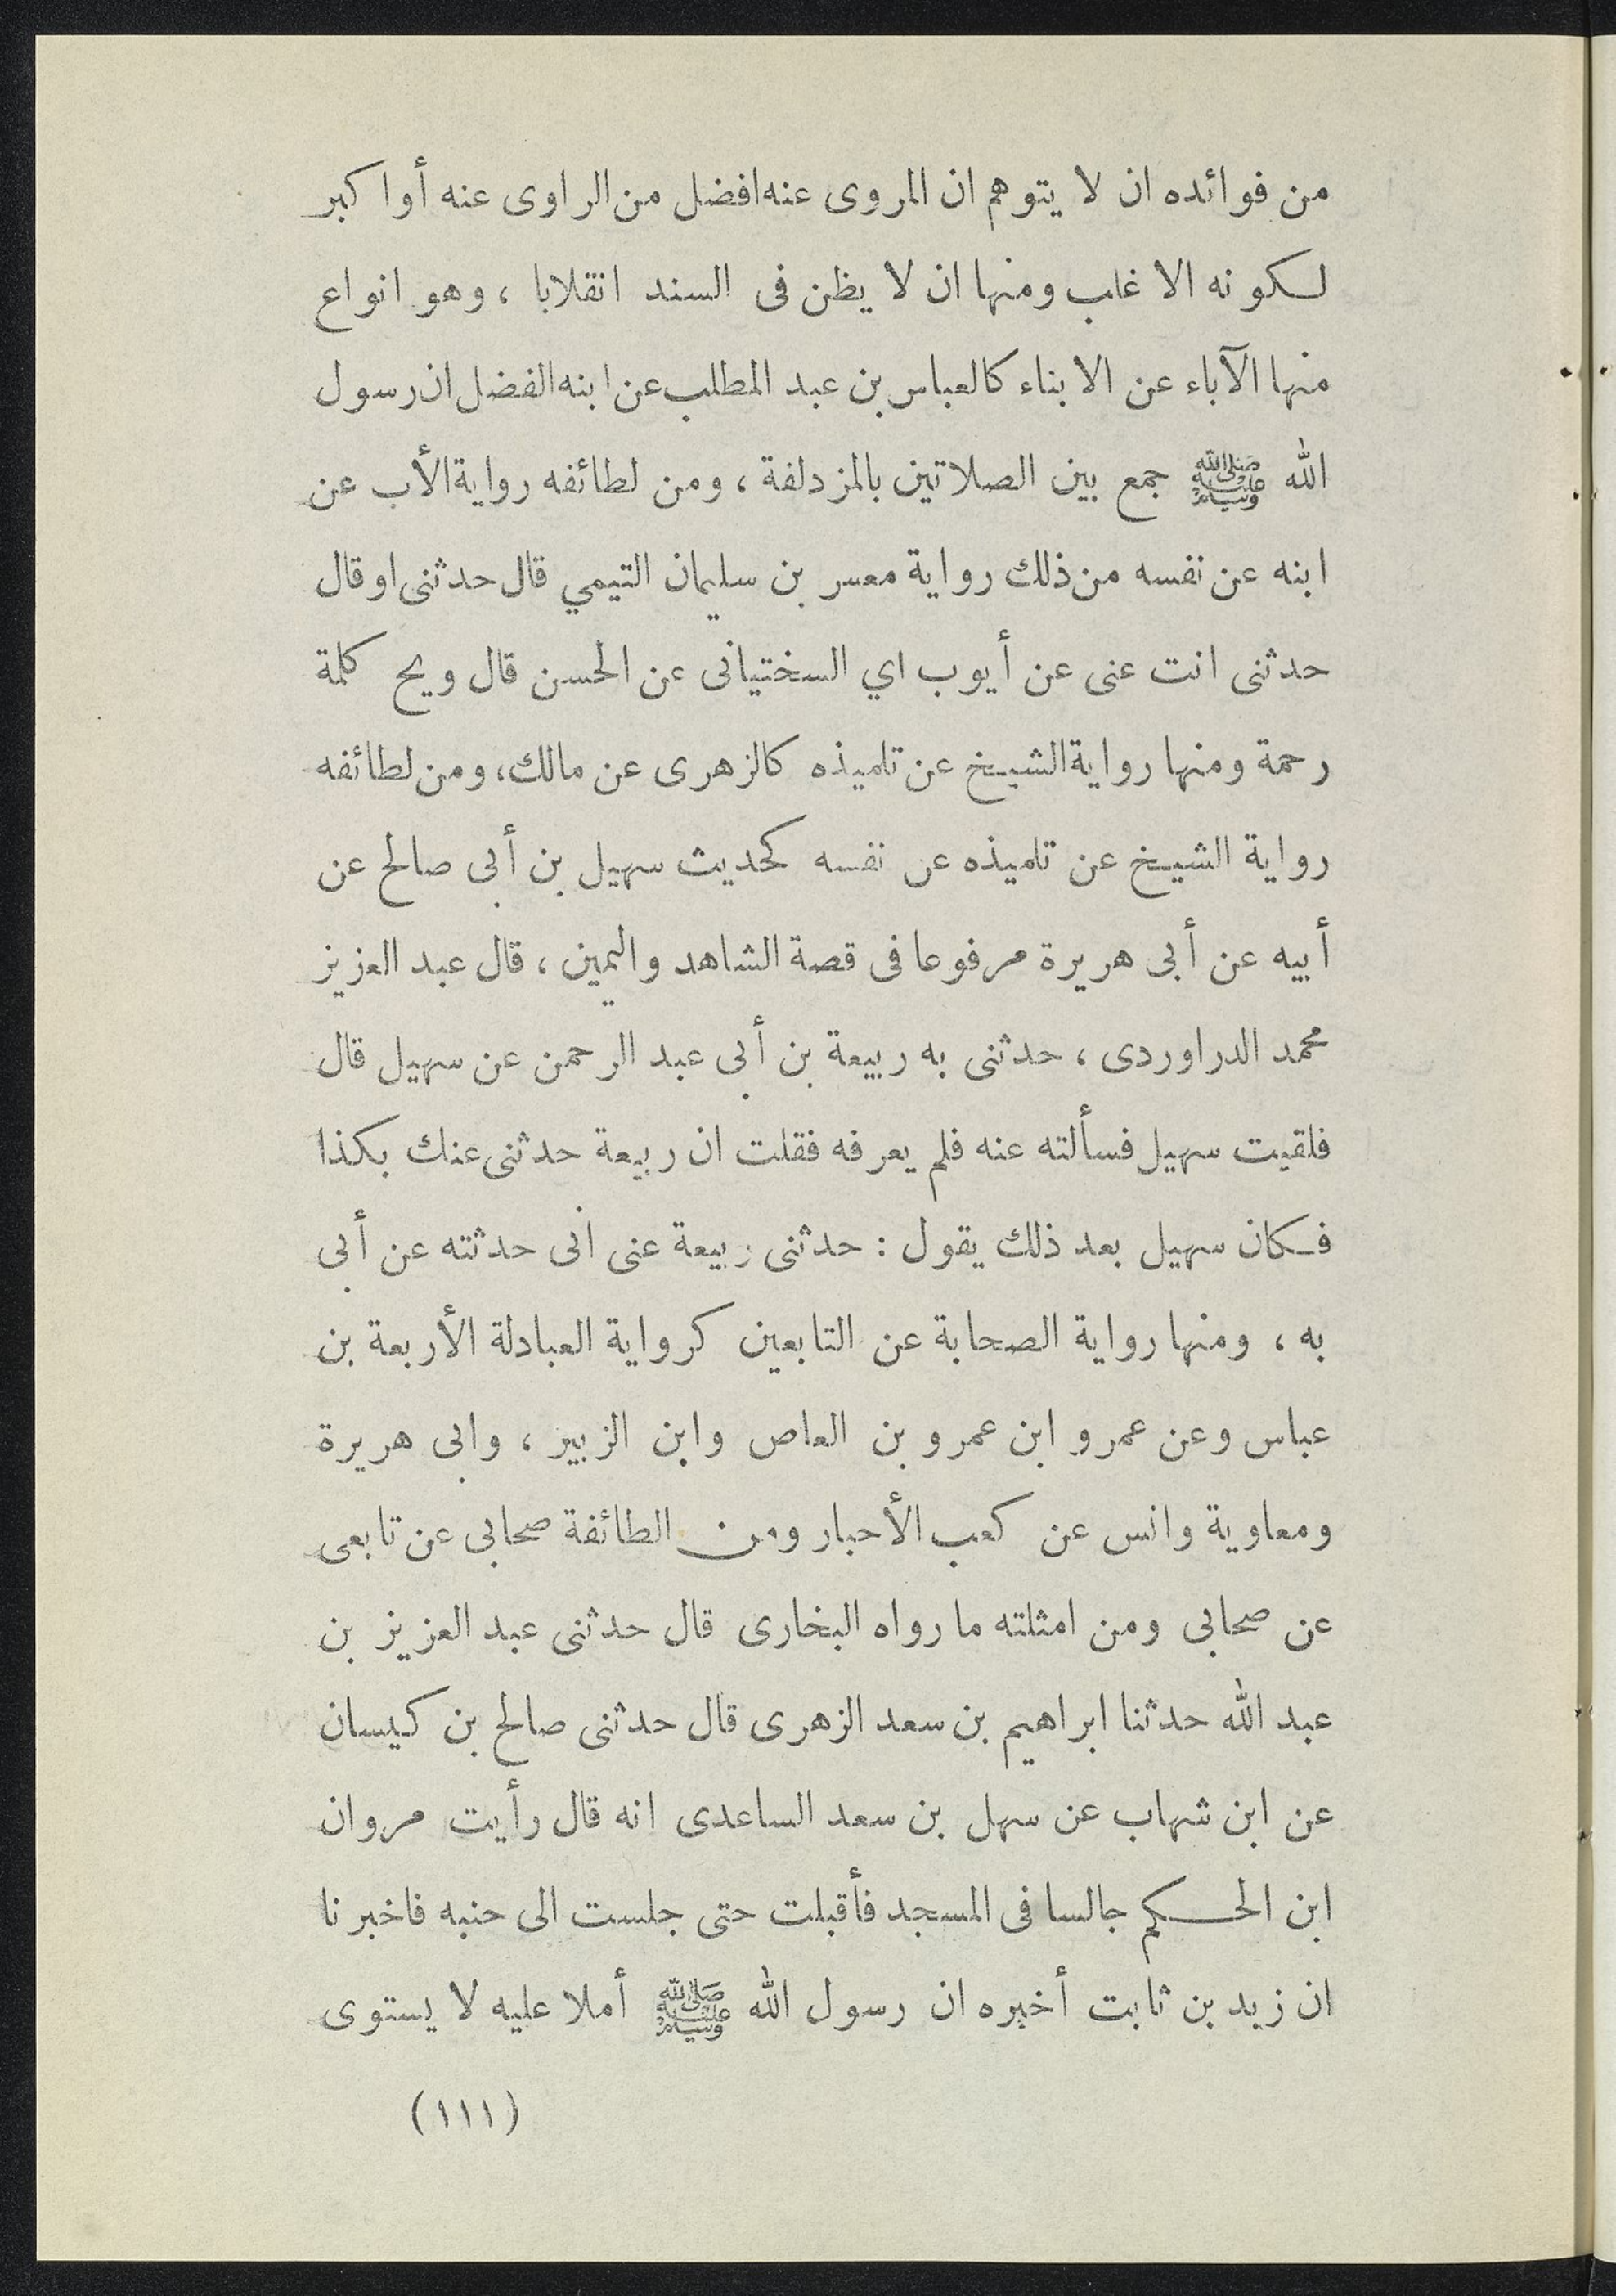 من فوائده ان لا يتوهم ان المروى عنه افضل من الراوى عنه أو اكبر
لكونه الاغلب ومنها ان لا يظن فى السند انقلابا ، وهو انواع
منها الآباء عن الابناء كالعباس بن عبد المطلب عن ابنه الفضل ان رسول
الله ﷺ جمع بين الصلاتين بالمزدلفة ، ومن لطائفه رواية الأب عن
ابنه عن نفسه من ذلك رواية معسر بن سليمان التيمي قال حدثنى او قال
حدثنى انت عنى عن أيوب اي السختيانى عن الحسن قال ويح كلمة
رحمة ومنها رواية الشيخ عن تلميذه كالزهرى عن مالك، ومن لطائفه
رواية الشيخ عن تلميذه عن نفسه كحديث سهيل بن أبى صالح عن
أبيه عن أبى هريرة مرفوعا فى قصة الشاهد واليمين ، قال عبد العزيز
محمد الدراوردى ، حدثنى به ربيعة بن أبى عبد الرحمن عن سهيل قال
فلقيت سهيل فسألته عنه فلم يعرفه فقلت ان ربيعة حدثنى عنك بكذا
فكان سهيل بعد ذلك يقول : حدثنى ربيعة عنى انى حدثته عن أبى
به ، ومنها رواية الصحابة عن التابعين كرواية العبادلة الأربعة بن
عباس وعن عمرو ابن عمرو بن العاص وابن الزبير ، وابى هريرة
ومعاوية وانس عن كعب الأحبار ومن الطائفة صحابى عن تابعى
عن صحابى ومن امثلته ما رواه البخارى قال حدثنى عبد العزيز بن
عبد الله حدثنا ابراهيم بن سعد الزهرى قال حدثنى صالح بن كيسان
عن ابن شهاب عن سهل بن سعد الساعدى انه قال رأيت مروان
ابن الحكم جالسا فى المسجد فأقبلت حتى جلست الى حنبه فاخبرنا
ان زيد بن ثابت أخبره ان رسول الله ﷺ أملا عليه لا يستوى
(١١١)